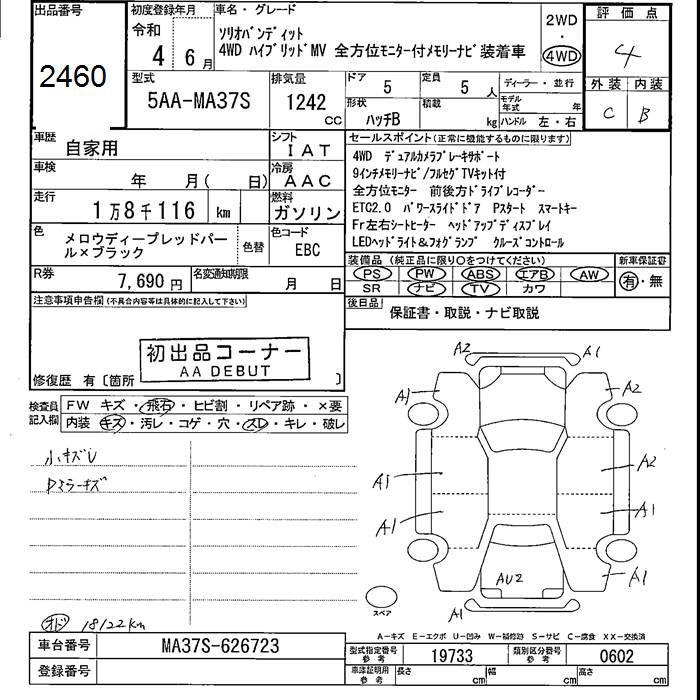 出品番号
2460
初度登録年月
令和
4 6月
車名・グレード
ソリオバンディット
4WD ハイブリッドMV 全方位モニター付メモリーナビ装着車
2WD
・
4WD
評価点
4
外装 内装
C B
型式
5AA-MA37S
排気量
1242 CC
ドア 5
定員 5 人
形状 ハッチB
積載 kg
ディーラー・並行
モデル年式 年
ハンドル 左・右
車歴 自家用
シフト IAT
車検 年 月( 日)
冷房 AAC
走行 1万8千116 km
燃料 ガソリン
色 メロウディープレッドパール×ブラック
色替
色コード EBC
R券 7,690円
名変通知期限 月 日
セールスポイント(正常に機能するものに限ります)
4WD デュアルカメラブレーキサポート
9インチメモリーナビ/フルセグTVキット付
全方位モニター 前後方ドライブレコーダー
ETC2.0 パワースライドドア Pスタート スマートキー
Fr左右シートヒーター ヘッドアップディスプレイ
LEDヘッドライト&フォグランプ クルーズコントロール
装備品(純正品に限り○をつけてください)
PS PW ABS エアB AW
SR ナビ TV カワ
新車保証書
有・無
後日品 保証書・取説・ナビ取説
注意事項申告欄(不具合内容等は具体的に記入して下さい)
初出品コーナー
AA DEBUT
修復歴 有〔箇所 〕
検査員記入欄
FW キズ・飛石・ヒビ割・リペア跡・×要
内装 キズ・汚レ・コゲ・穴・スレ・キレ・破レ
小キズU
Rミラーキズ
オド 18122km
A2 A1
A1 A2
A1 A2
A1 A1
AU2 A1
A1
スペア
A－キズ E－エクボ U－凹み W－補修跡 S－サビ C－腐食 XX－交換済
車台番号 MA37S-626723
登録番号
型式指定番号 参考 19733
類別区分番号 参考 0602
車庫証明用 参考 長さ cm 幅 cm 高さ cm